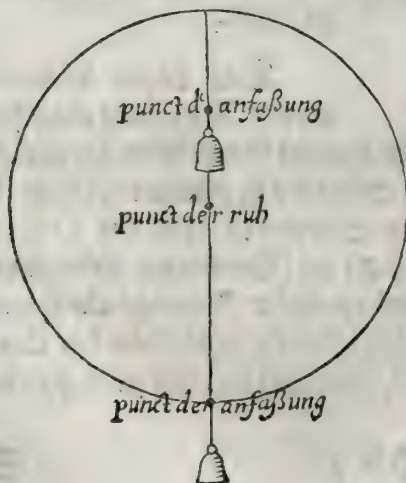 punct d' anfaßung
punct der ruh
punct der anfaßung